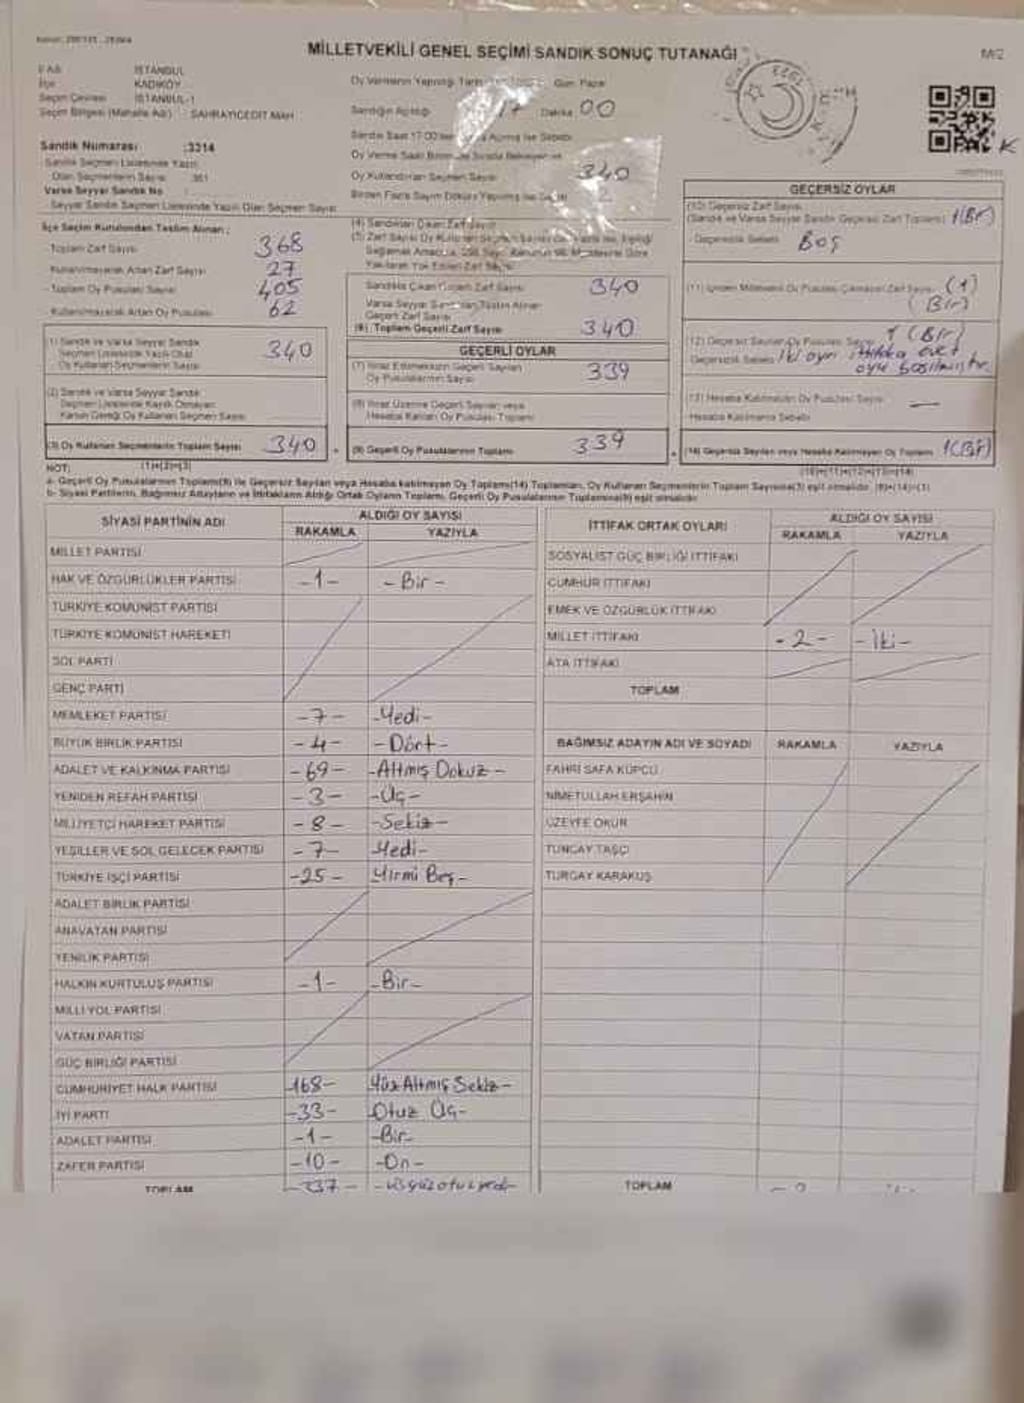 MİLLETVEKİLİ GENEL SEÇİMİ SANDIK SONUÇ TUTANAĞI
İSTANBUL
İlçe KADIKÖY
Seçim Çevresi İSTANBUL-1
Seçim Bölgesi (Mahalle Adı) : SAHRAYICEDİT MAH
Sandık Numarası :3314
Sandık Seçmen Listesinde Yazılı
Olan Seçmenlerin Sayısı : 361
Varsa Seyyar Sandık No
Seyyar Sandık Seçmen Listesinde Yazılı Olan Seçmen Sayısı
İlçe Seçim Kurulundan Teslim Alınan :
Toplam Zarf Sayısı 368
Kullanılmayarak Artan Zarf Sayısı 27
Toplam Oy Pusulası Sayısı 405
Kullanılmayarak Artan Oy Pusulası 62
(1) Sandık ve Varsa Seyyar Sandık
Seçmen Listesinde Yazılı Olup
Oy Kullanan Seçmenlerin Sayısı 340
(2) Sandık ve Varsa Seyyar Sandık
Seçmen Listesinde Kayıtlı Olmayan
Kanun Gereği Oy Kullanan Seçmen Sayısı
(3) Oy Kullanan Seçmenlerin Toplam Sayısı 340
(1)+(2)=(3)
Gün Pazar
Sandığın Açıldığı 17 Dakika 00
Oy Kullandıran Seçmen Sayısı 340
(4) Sandıktan Çıkan Zarf Sayısı
Sandıkta Çıkan Geçerli Zarf Sayısı 340
Varsa Seyyar Sandıktan Teslim Alınan
Geçerli Zarf Sayısı
(6) Toplam Geçerli Zarf Sayısı 340
GEÇERLİ OYLAR
(7) İtiraz Edilmeksizin Geçerli Sayılan
Oy Pusulalarının Sayısı 339
(8) İtiraz Üzerine Geçerli Sayılan veya
Hesaba Katılan Oy Pusulası Toplamı
(9) Geçerli Oy Pusulalarının Toplamı 339
M/2
GEÇERSİZ OYLAR
(10) Geçersiz Zarf Sayısı
(Sandık ve Varsa Seyyar Sandık Geçersiz Zarf Toplamı) 1(Bir)
Geçersizlik Sebebi Boş
(1)
(Bir)
(12) Geçersiz Sayılan Oy Pusulası Sayısı 1 (Bir)
Geçersizlik Sebebi İki ayrı ittifaka evet
oyu basılmıştır.
(13) Hesaba Katılmayan Oy Pusulası Sayısı —
Hesaba Katılmama Sebebi
(14) Geçersiz Sayılan veya Hesaba Katılmayan Oy Toplamı 1(Bir)
(10)+(11)+(12)+(13)=(14)
NOT:
a- Geçerli Oy Pusulalarının Toplamı(9) ile Geçersiz Sayılan veya Hesaba katılmayan Oy Toplamı(14) Toplamları, Oy Kullanan Seçmenlerin Toplam Sayısına(3) eşit olmalıdır. (9)+(14)=(3)
b- Siyasi Partilerin, Bağımsız Adayların ve İttifakların Aldığı Ortak Oyların Toplamı, Geçerli Oy Pusulalarının Toplamına(9) eşit olmalıdır
SİYASİ PARTİNİN ADI ALDIĞI OY SAYISI
RAKAMLA YAZIYLA
MİLLET PARTİSİ
HAK VE ÖZGÜRLÜKLER PARTİSİ -1- -Bir-
TÜRKİYE KOMÜNİST PARTİSİ
TÜRKİYE KOMÜNİST HAREKETİ
SOL PARTİ
GENÇ PARTİ
MEMLEKET PARTİSİ -7- -Yedi-
BÜYÜK BİRLİK PARTİSİ -4- -Dört-
ADALET VE KALKINMA PARTİSİ -69- -Altmış Dokuz-
YENİDEN REFAH PARTİSİ -3- -Üç-
MİLLİYETÇİ HAREKET PARTİSİ -8- -Sekiz-
YEŞİLLER VE SOL GELECEK PARTİSİ -7- -Yedi-
TÜRKİYE İŞÇİ PARTİSİ -25- -Yirmi Beş-
ADALET BİRLİK PARTİSİ
ANAVATAN PARTİSİ
YENİLİK PARTİSİ
HALKIN KURTULUŞ PARTİSİ -1- -Bir-
MİLLİ YOL PARTİSİ
VATAN PARTİSİ
GÜÇ BİRLİĞİ PARTİSİ
CUMHURİYET HALK PARTİSİ -168- Yüz Altmış Sekiz-
İYİ PARTİ -33- -Otuz Üç-
ADALET PARTİSİ -1- -Bir-
ZAFER PARTİSİ -10- -On-
TOPLAM -337- -üç yüz otuz yedi-
İTTİFAK ORTAK OYLARI ALDIĞI OY SAYISI
RAKAMLA YAZIYLA
SOSYALİST GÜÇ BİRLİĞİ İTTİFAKI
CUMHUR İTTİFAKI
EMEK VE ÖZGÜRLÜK İTTİFAKI
MİLLET İTTİFAKI -2- -İki-
ATA İTTİFAKI
TOPLAM
BAĞIMSIZ ADAYIN ADI VE SOYADI RAKAMLA YAZIYLA
FAHRİ SAFA KÜPCÜ
NİMETULLAH ERŞAHİN
ÜZEYFE OKUR
TUNCAY TAŞÇI
TURGAY KARAKUŞ
TOPLAM